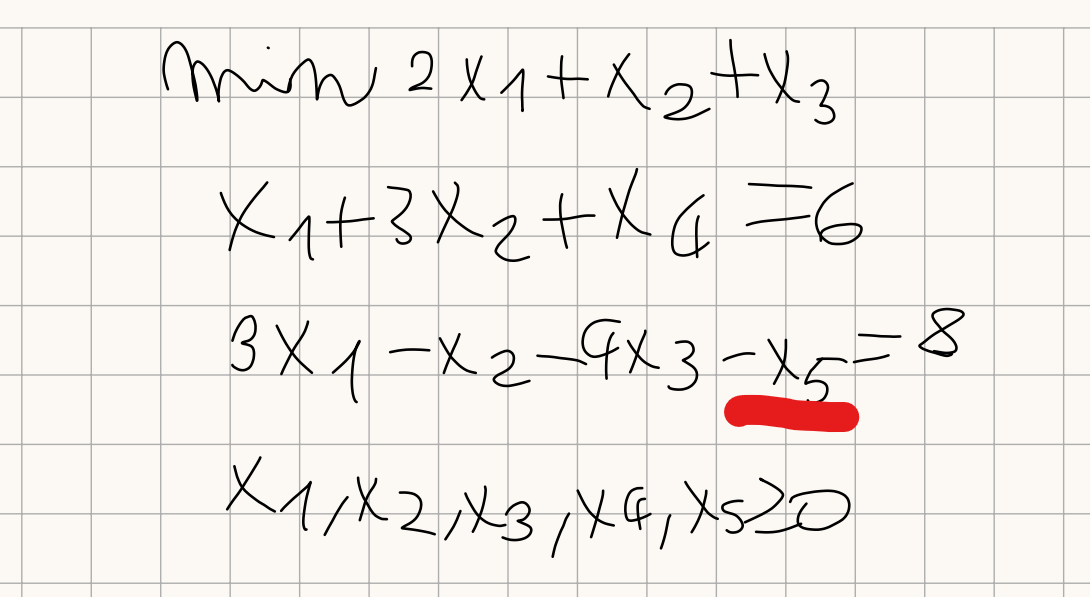 min 2x₁+x₂+x₃
x₁+3x₂+x₄=6
3x₁-x₂-4x₃-x₅=8
x₁,x₂,x₃,x₄,x₅≥0